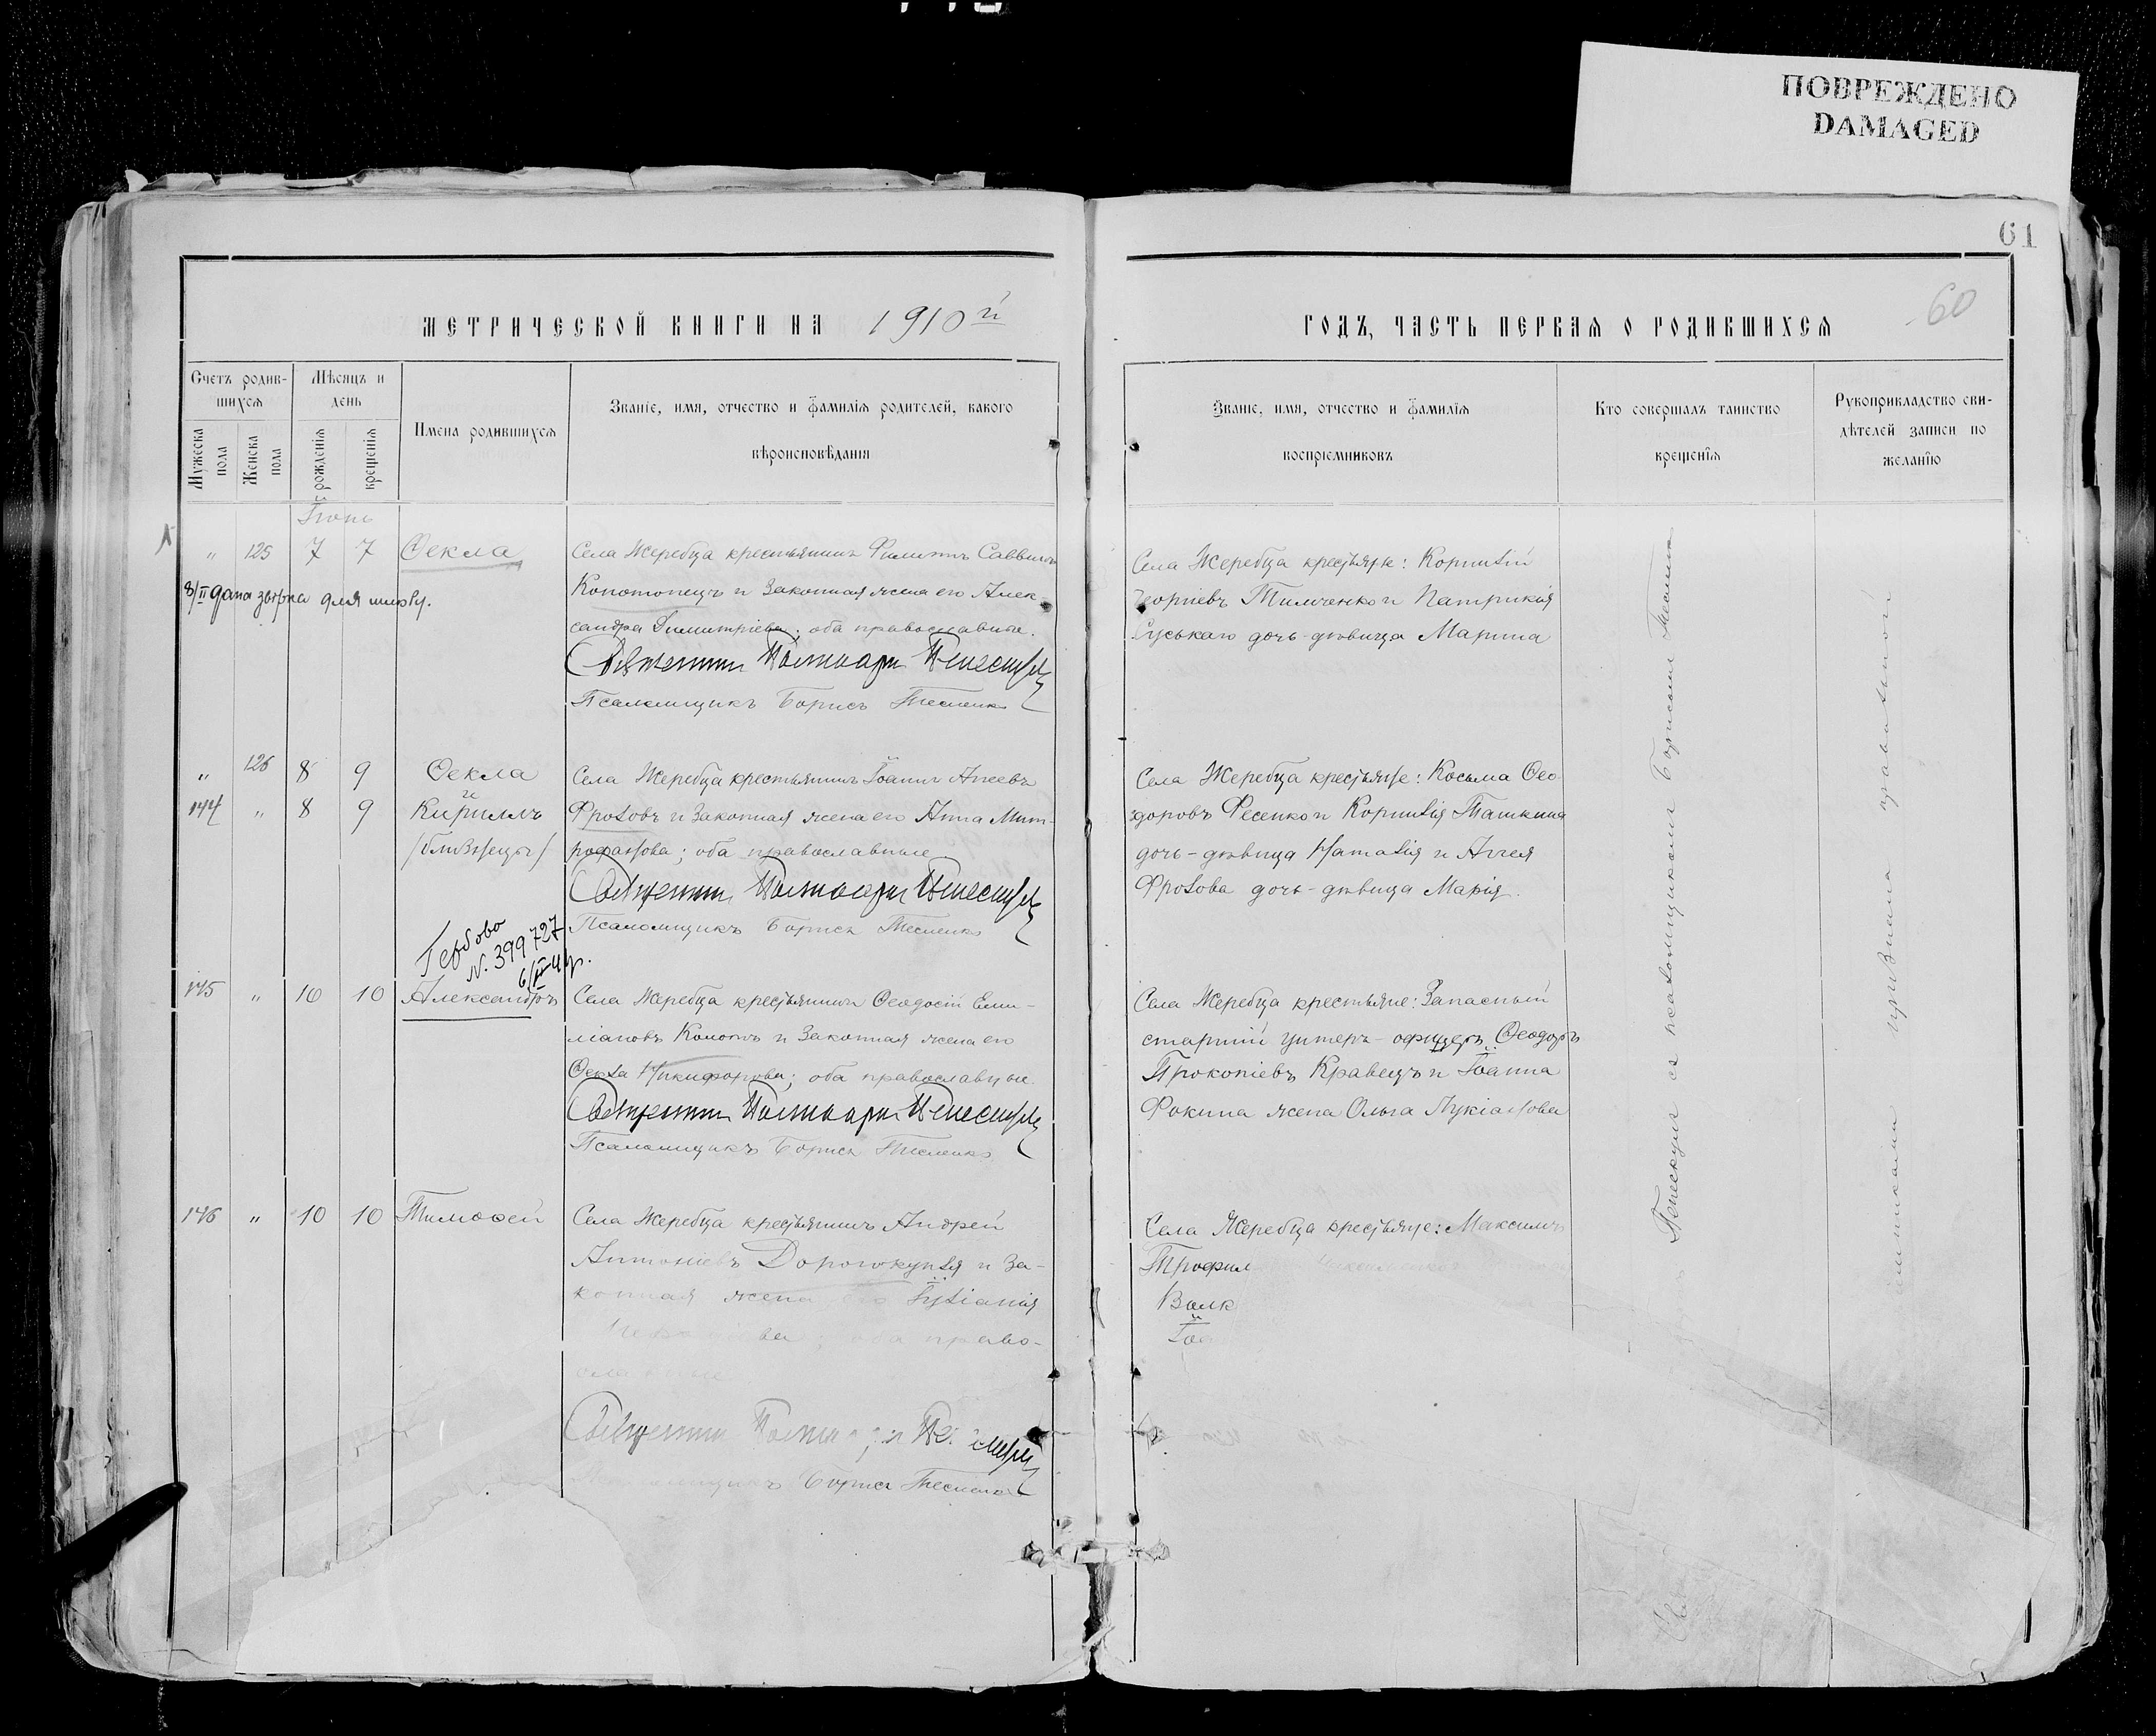 ПОВРЕЖДЕНО
DAMAGED
61
60
МЕТРИЧЕСКОЙ КНИГИ НА 1910й
Счетъ родив-
шихся
Мѣсяцъ и
день
Имена родившихся
Званіе, имя, отчество и фамилія родителей, какого
вѣроисповѣданія
Мужеска
пола
Женска
пола
рожденія
крещенія
Іюнь
" 125 7 7 Ѳекла
Села Жеребца крестьянинъ Филиппъ Саввинъ
8/II дана
для
Конотопецъ и законная жена его Алек-
сандра Димитріева; оба православные.
Священникъ
Псаломщикъ Борисъ Тесленко
" 126 8 9 Ѳекла
Села Жеребца крестьянинъ Іоаннъ Агеевъ
144 " 8 9 Кириллъ
Фроловъ и законная жена его Анна Мит-
/близнецы/
рофанова; оба православные
Священникъ
Псаломщикъ Борисъ Тесленко
Гербово
N. 399727
145 " 10 10 Александръ
Села Жеребца крестьянинъ Ѳеодосій Еми-
ліановъ и законная жена его
Ѳекла Никифорова; оба православные.
Священникъ
Псаломщикъ Борисъ Тесленко
146 " 10 10 Тимоѳей
Села Жеребца крестьянинъ Андрей
Антоніевъ Дорогокупля и за-
конная жена его Іуліанія
оба право-
славные
Священникъ
Борисъ Тесленко
ГОДЪ, ЧАСТЬ ПЕРВАЯ О РОДИВШИХСЯ
Званіе, имя, отчество и фамилія
воспріемниковъ
Кто совершалъ таинство
крещенія
Рукоприкладство сви-
дѣтелей записи по
желанію
Села Жеребца крестьяне: Корнилій
Георгіевъ Тимченко и Патрикія
дочь-дѣвица Марина
Села Жеребца крестьяне: Косьма Ѳео-
доровъ Фесенко и Корнилія Ташкина
дочь-дѣвица Наталія и Аггея
Фролова дочь-дѣвица Марія.
Села Жеребца крестьяне: Запасный
старшій унтеръ-офицеръ Ѳеодоръ
Прокопіевъ Кравецъ и Іоанна
Фокина жена Ольга Лукіанова
Села Жеребца крестьяне: Максимъ
Трофим
Волк
Іоа
съ псаломщикомъ Борисомъ Тесленко